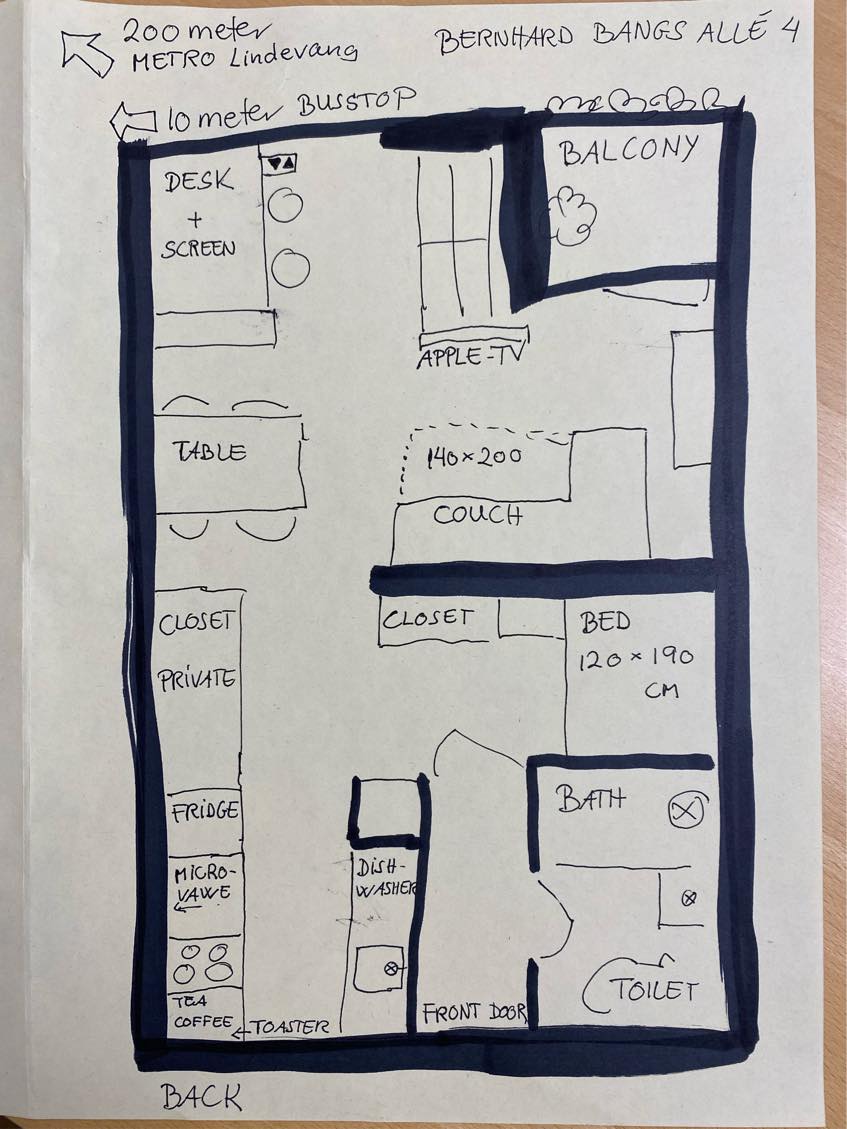 200 meter
METRO Lindevang
BERNHARD BANGS ALLÉ 4
10 meter BUSSTOP
BALCONY
DESK
+
SCREEN
APPLE-TV
TABLE
140 x 200
COUCH
CLOSET
PRIVATE
CLOSET
BED
120 x 190
CM
FRIDGE
BATH
MICRO-
VAWE
DISH-
WASHER
TEA
COFFEE
TOASTER
FRONT DOOR
TOILET
BACK